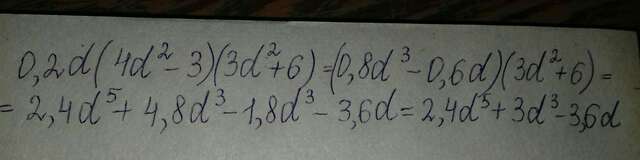 0,2d(4d²-3)(3d²+6)=(0,8d³-0,6d)(3d²+6)=
=2,4d⁵+4,8d³-1,8d³-3,6d=2,4d⁵+3d³-3,6d